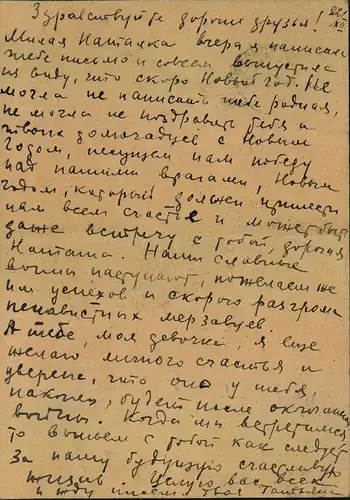 Здравствуйте дорогие друзья! 22/XII
Милая Наталка вчера я написала
тебе письмо и совсем выпустила
из виду, что скоро Новый год. Не
могла не написать тебе родная,
не могла не поздравить тебя и
твоих домочадцев с Новым
Годом, несущим нам победу
над нашими врагами, Новым
годом, который должен принести
нам всем счастье и может быть
даже встречу с тобой, дорогая
Наташа. Наши славные
воины наступают, пожелаем же
им успехов и скорого разгрома
ненавистных мерзавцев.
А тебе, моя девочка, я еще
желаю личного счастья и
уверена, что оно у тебя,
наконец, будет после окончания
войны. Когда мы встретимся
то выпьем с тобой как следует
за нашу будущую счастливую
жизнь. Целую вас всех
и жду писем. Твоя